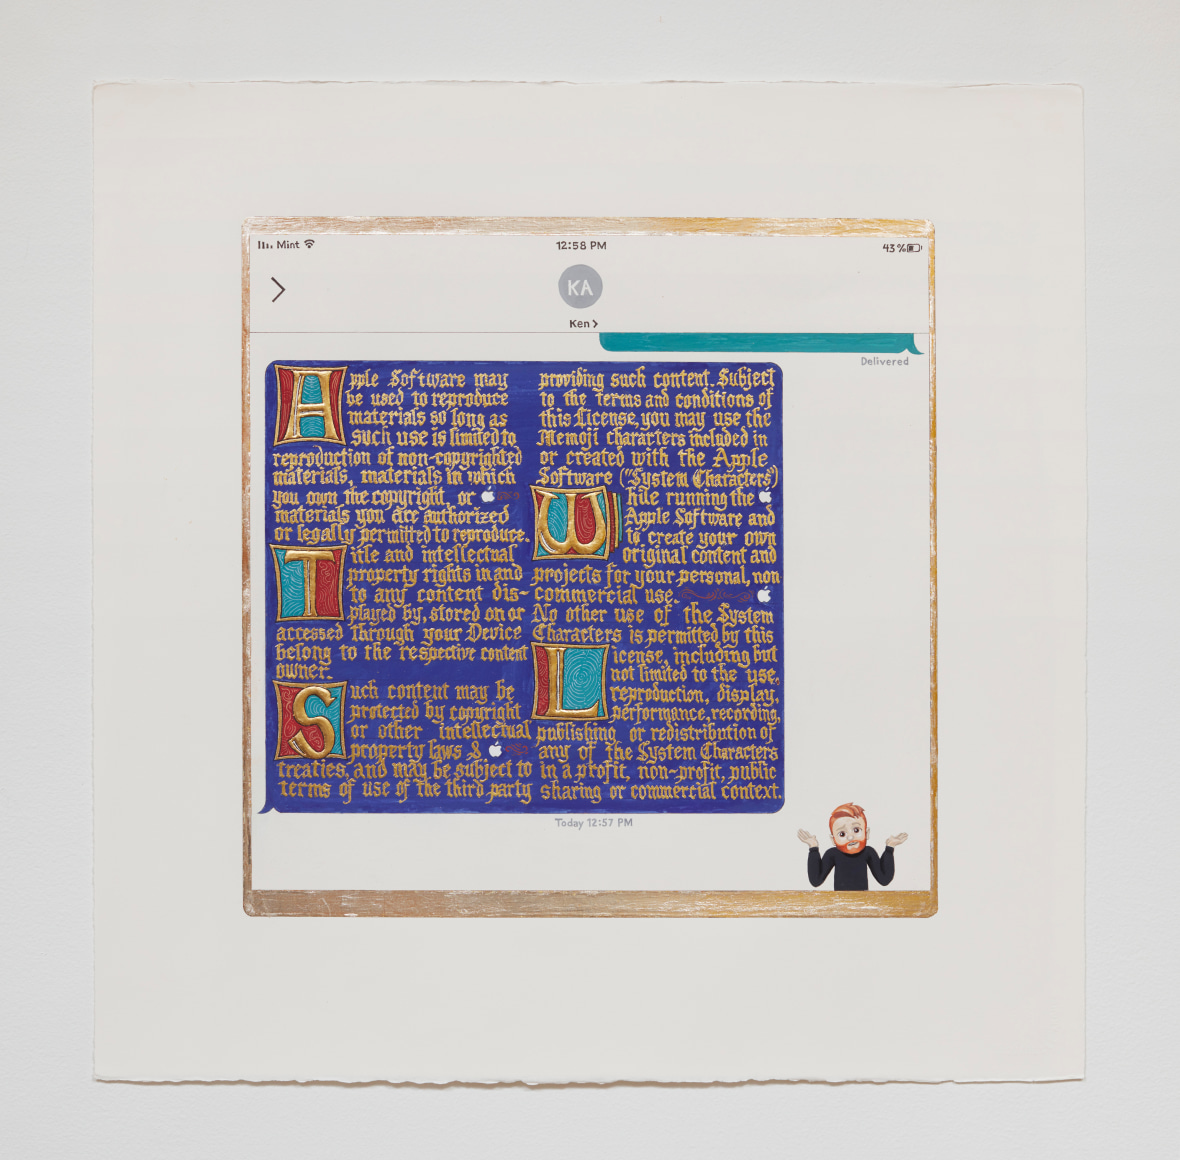 Mint
12:58 PM
43%
KA
Ken >
Delivered
Apple Software may
be used to reproduce
materials so long as
such use is limited to
reproduction of non-copyrighted
materials, materials in which
you own the copyright, or
materials you are authorized
or legally permitted to reproduce.
Title and intellectual
property rights in and
to any content dis-
played by, stored on or
accessed through your Device
belong to the respective content
owner.
Such content may be
protected by copyright
or other intellectual
property laws &
treaties, and may be subject to
terms of use of the third party
providing such content. Subject
to the terms and conditions of
this License, you may use the
Memoji characters included in
or created with the Apple
Software ("System Characters")
While running the
Apple Software and
to create your own
original content and
projects for your personal, non
commercial use.
No other use of the System
Characters is permitted by this
License, including but
not limited to the use,
reproduction, display,
performance, recording,
publishing or redistribution of
any of the System Characters
in a profit, non-profit, public
sharing or commercial context.
Today 12:57 PM